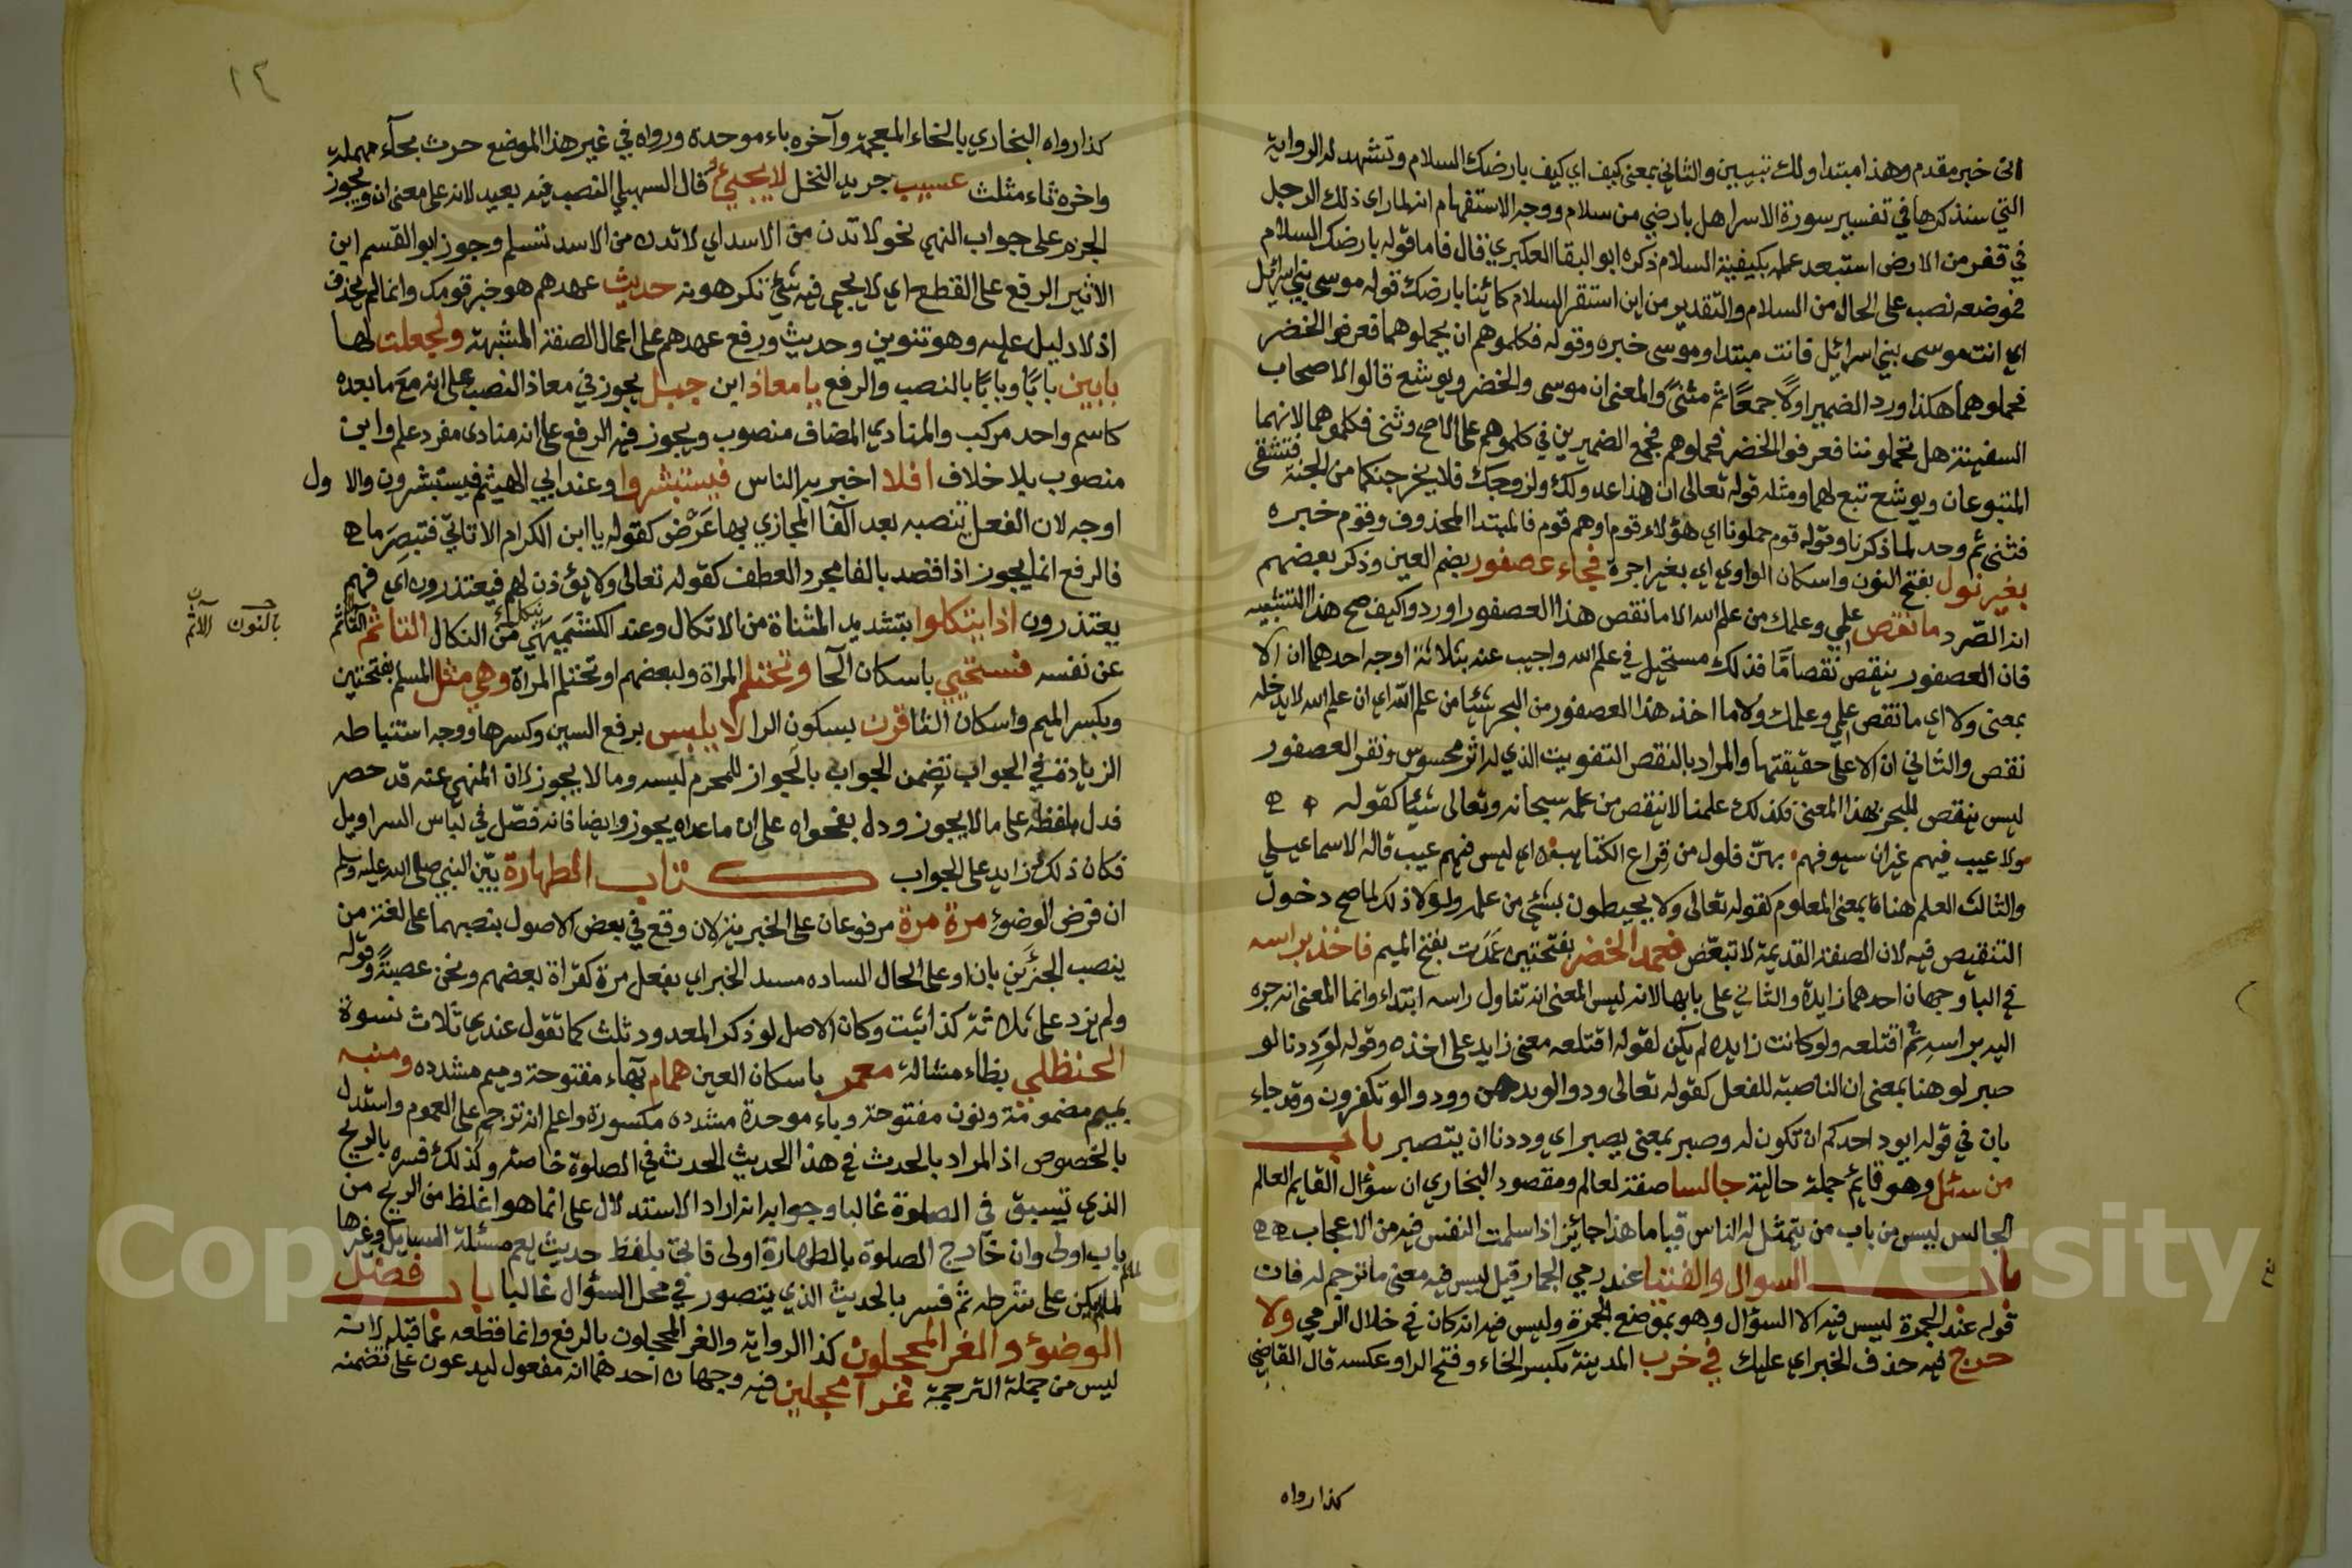 انى خبر مقدم وهذا مبتدا ولك تبيين والثاني بمعنى كيف اي كيف بارضك السلام وتشهد له الرواية
التي سنذكرها في تفسير سورة الاسرا هل بارضي من سلام ووجه الاستفهام انه لما راى ذلك الرجل
في قفر من الارض استبعد علمه بكيفية السلام ذكره ابو البقا العكبري قال فاما قوله بارضك السلام
فموضعه نصب على الحال من السلام والتقدير من اين استقر السلام كائنا بارضك قوله موسى بني اسرائيل
اي انت موسى بني اسرائيل فانت مبتدا وموسى خبره وقوله فكلموهم ان يحملوهما فعرفوا الخضر
فحملوهما هكذا ورد الضمير اولا جمعا ثم مثنى والمعنى ان موسى والخضر ويوشع قالوا لاصحاب
السفينة هل تحملوننا فعرفوا الخضر فحملوهم فجمع الضميرين في كلموهم على الاصح وثنى فكلموهما لانهما
المتبوعان ويوشع تبع لهما ومثله قوله تعالى ان هذا عدو لك ولزوجك فلا يخرجنكما من الجنة فتشقى
فثنى ثم وحد لما ذكرنا وقوله قوم حملونا اي هؤلاء قوم او هم قوم فالمبتدا المحذوف وقوم خبره
بغير نول بفتح النون واسكان الواو اي بغير اجرة فجاء عصفور بضم العين وذكر بعضهم
انه الصرد ما نقص علمي وعلمك من علم الله الا ما نقص هذا العصفور اورد واكيف صح هذا التشبيه
فان العصفور ينقص نقصا ما فذلك مستحيل في علم الله واجيب عنه بثلاثة اوجه احدهما ان الا
بمعنى ولا اي ما نقص علمي وعلمك ولا ما اخذ هذا العصفور من البحر شيئا من علم الله اي ان علم الله لا يدخله
نقص والثاني ان الا على حقيقتها والمراد بالنقص التفويت الذي له اثر محسوس ونقر العصفور
ليس ينقص للبحر بهذا المعنى فكذلك علمنا لا ينقص من علمه سبحانه وتعالى شيئا كقوله
ولا عيب فيهم غير ان سيوفهم بهن فلول من قراع الكتايب اي ليس فيهم عيب قاله الاسماعيلي
والثالث العلم هنا بمعنى المعلوم كقوله تعالى ولا يحيطون بشئ من علمه ولولا ذلك لما صح دخول
التنقيص فيه لان الصفة القديمة لا تبعض فعمد الخضر بفتحتين عمدت بفتح الميم فاخذ براسه
في البا وجهان احدهما زايدة والثاني على بابها لانه ليس المعنى انه تناول راسه ابتداء وانما المعنى انه جره
اليه براسه ثم اقتلعه ولو كانت زايده لم يكن لقوله اقتلعه معنى زايد على اخذه وقوله لوددنا لو
صبر لو هنا بمعنى ان الناصبة للفعل كقوله تعالى ودوا لو يدهن وودوا لو تكفرون وقد جاء
بان في قوله ايود احدكم ان تكون له وصبر بمعنى يصبر اي وددنا ان يتصبر باب
من سئل وهو قايم جملة حالية جالسا صفة لعالم ومقصود البخاري ان سؤال القايم العالم
الجالس ليس من باب من يتمثل له الناس قياما هذا جائز اذا سلمت النفس فيه من الاعجاب
باب السوال والفتيا عند رمي الجمار قيل ليس فيه معنى ما ترجم له فان
قوله عند الجمرة ليس فيه الا السؤال وهو بموضع الجمرة وليس فيه انه كان في خلال الرمي ولا
حرج فيه حذف الخبر اي عليك في خرب المدينة بكسر الخاء وفتح الرا وعكسه قال القاضي
كذا رواه
١٤
كذا رواه البخاري بالخاء المعجمة وآخره باء موحدة ورواه في غير هذا الموضع حرث بحآء مهملة
واخره ثاء مثلث عسيب جريد النخل لا يجيئ قال السهيلي النصب فيه بعيد لانه على معنى ان ويجوز
الجزم على جواب النهي نحو لا تدن من الاسد اي لا تدن من الاسد تسلم وجوز ابو القسم ابن
الاثير الرفع على القطع اي لا يجئ فيه شئ تكرهونه حديث عهدهم هو خبر قومك وانما لم يحذف
اذ لا دليل عليه وهو تنوين وحديث ورفع عهدهم على اعمال الصفة المشبهة ولجعلت لها
بابين بابا وبابا بالنصب والرفع يا معاذ ابن جبل يجوز في معاذ النصب على انه مع ما بعده
كاسم واحد مركب والمنادي المضاف منصوب ويجوز فيه الرفع على انه منادى مفرد علم وابن
منصوب بلا خلاف افلا اخبر به الناس فيستبشروا وعند ابي الهيثم فيستبشرون والاول
اوجه لان الفعل ينصبه بعد الفا المجازي بها عرض كقوله يا ابن الكرام الا تاتي فتبصر ما
فالرفع انما يجوز اذا قصد بالفا مجرد العطف كقوله تعالى ولا يؤذن لهم فيعتذرون اي فهم
يعتذرون اذا يتكلوا بتشديد المثناة من الاتكال وعند الكشميهني ينكلوا من النكال التاثم
بالنون
عن نفسه فتستحيي باسكان الحا وتحتلم المراة ولبعضهم او تحتلم المراة وهي مثل المسلم بفتحتين
وبكسر الميم واسكان الثا قرن بسكون الرا لا يلبس برفع السين وكسرها ووجه استنباطه
الزيادة في الجواب تضمن الجواب بالجواز للمحرم لبسه وما لا يجوز لان المنهي عنه قد حصر
فدل بلفظه على ما لا يجوز ودل بفحواه على ان ما عداه يجوز وايضا فانه فصل في لباس السراويل
فكان ذلك زايد على الجواب كتاب الطهارة بين النبي صلى الله عليه وسلم
ان فرض الوضوء مرة مرة مرفوعان على الخبرية لان وقع في بعض الاصول بنصبهما على لغة من
ينصب الجزئين بان او على الحال الساده مسد الخبر اي يفعل مرة كقراة بعضهم ونحن عصبة وقوله
ولم يزد على ثلاثة كذا ثبت وكان الاصل لو ذكر المعدود ثلث كما تقول عندي ثلاث نسوة
الحنظلي بظاء مشالة معمر باسكان العين همام بهاء مفتوحة وميم مشدده ومنبه
بميم مضمومة ونون مفتوحة وباء موحدة مشدده مكسورة واعلم انه ترجم على العموم واستدل
بالخصوص اذ المراد بالحدث في هذا الحديث الحدث في الصلوة خاصة وكذلك فسره بالريح
الذي تسبق في الصلوة غالبا وجوابه انه اراد الاستدلال على انما هو اغلظ من الريح من
باب اولى وان خارج الصلوة بالطهارة اولى بلفظ حديث يعم مسئلة السايل وغيرها
لما لم يكن على شرطه ثم فسر بالحديث الذي يتصور في محل السؤال غالبا باب فضل
الوضوء والغر المحجلون كذا الرواية والغر المحجلون بالرفع وانما قطعه عما قبله لانه
ليس من جملة الترجمة غرا محجلين فيه وجهان احدهما انه مفعول ليدعون على تضمنه
Copyright © King Saud University